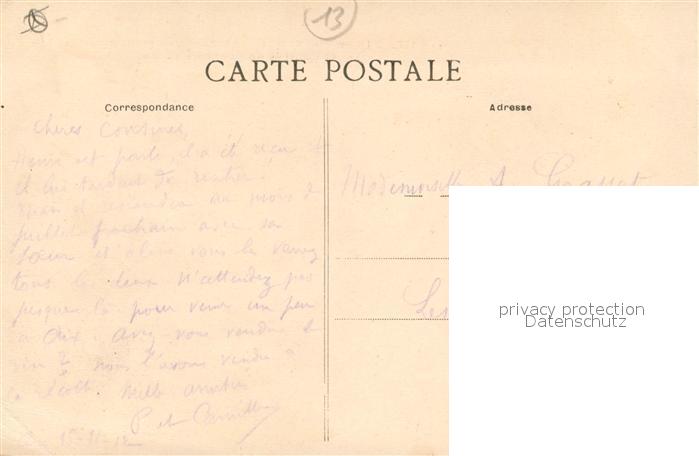 13
CARTE POSTALE
Correspondance
Adresse
Chères Cousines,
Henri est parti, il a été reçu et
il lui tardait de rentrer.
au mois de
juillet prochain avec sa
sœur et alors vous les verrez
tous les deux N'attendez pas
jusque là pour venir un peu
à Aix. Avez-vous vendu le
vin ? nous l'avons vendu
la récolte. Mille amitiés
P et Camille
15-11-12
Mademoiselle A.
Les
privacy protection
Datenschutz